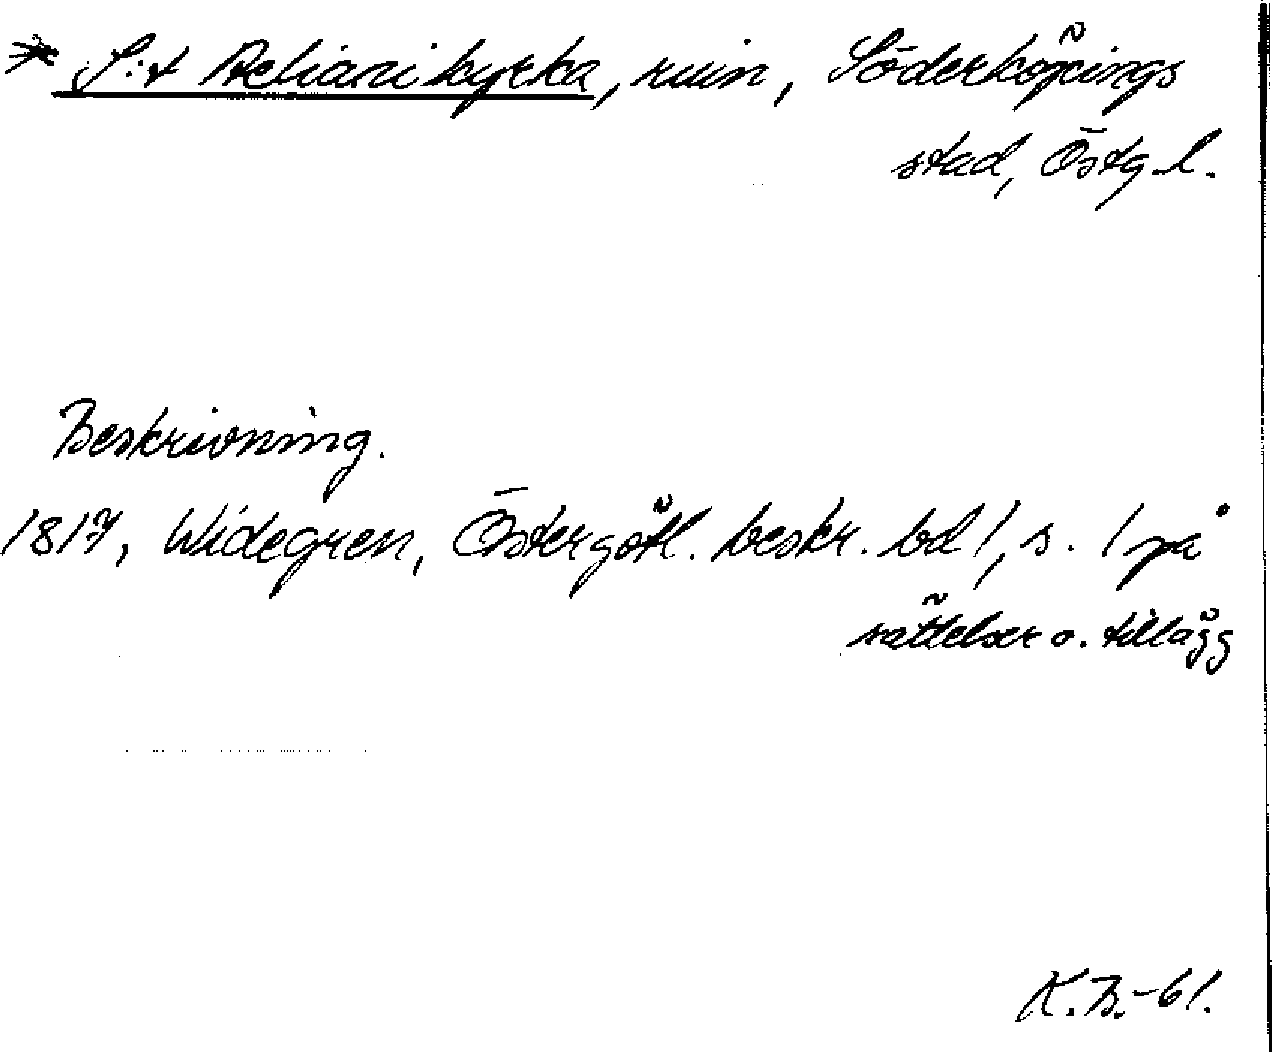 * S:t Aeliani kyrka, ruin, Söderköpings
stad, Östg.l.
Beskrivning.
1817, Widegren, Östergötl. beskr. bd 1, s. 1 på
rättelser o. tillägg
K.B.-61.